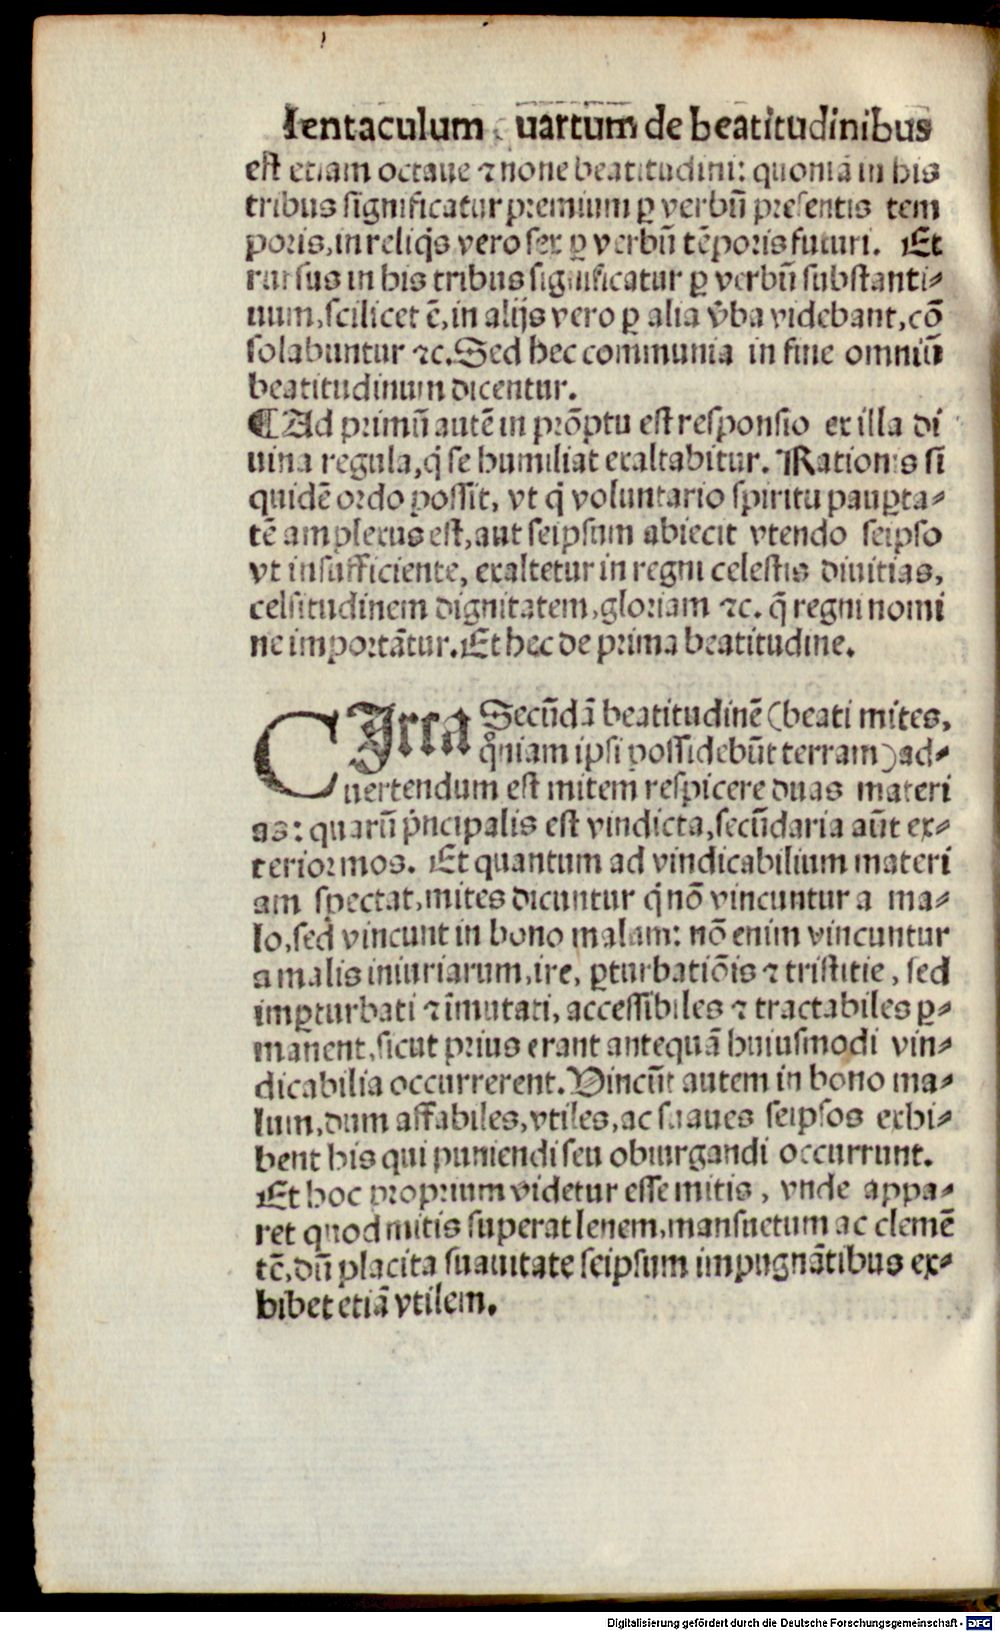 Ientaculum Quartum de beatitudinibus
est etiam octaue ⁊ none beatitudini: quoniā in his
tribus significatur premium ꝑ verbū presentis tem
poris, in reliq̇s vero sex ꝑ verbū tēporis futuri. Et
rursus in his tribus significatur ꝑ verbū substanti⸗
uum, scilicet ē, in alijs vero ꝑ alia v̄ba videbunt, cō
solabuntur ⁊c. Sed hec communia in fine omniū
beatitudinum dicentur.
¶ Ad primū autē in prōptu est responsio ex illa di
uina regula, q̇ se humiliat exaltabitur. Rationis si
quidē ordo possit, vt q̇ voluntario spiritu pauꝑta⸗
tē amplexus est, aut seipsum abiecit vtendo seipso
vt insufficiente, exaltetur in regni celestis diuitias,
celsitudinem dignitatem, gloriam ⁊c. q̄ regni nomi
ne importātur. Et hec de prima beatitudine.
CIrca Secūdā beatitudinē (beati mites,
qͦniam ipsi possidebūt terram) ad⸗
uertendum est mitem respicere duas materi
as: quarū pͥncipalis est vindicta, secūdaria aūt ex⸗
terior mos. Et quantum ad vindicabilium materi
am spectat, mites dicuntur q̇ nō vincuntur a ma⸗
lo, sed vincunt in bono malum: nō enim vincuntur
a malis iniuriarum, ire, ꝑturbatiōis ⁊ tristitie, sed
imꝑturbati ⁊ īmutati, accessibiles ⁊ tractabiles ꝑ⸗
manent, sicut prius erant antequā huiusmodi vin⸗
dicabilia occurrerent. Vincūt autem in bono ma⸗
lum, dum affabiles, vtiles, ac suaues seipsos exhi⸗
bent his qui puniendi seu obiurgandi occurrunt.
Et hoc proprium videtur esse mitis, vnde appa⸗
ret quod mitis superat lenem, mansuetum ac clemē
tē, dū placita suauitate seipsum impugnātibus ex⸗
hibet etiā vtilem.
Digitalisierung gefördert durch die Deutsche Forschungsgemeinschaft - DFG